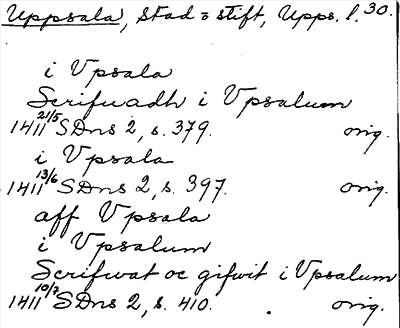 Uppsala, stad o stift, Upps. l. 30.
i Vpsala
Scrifwadh i Vpsalum
1411 21/5 SDns 2, s. 379. orig.
i Vpsala
1411 13/6 SDns 2, s. 397. orig.
aff Vpsala
i Vpsalum
Scrifwat oc gifwit i Vpsalum
1411 10/7 SDns 2, s. 410. orig.